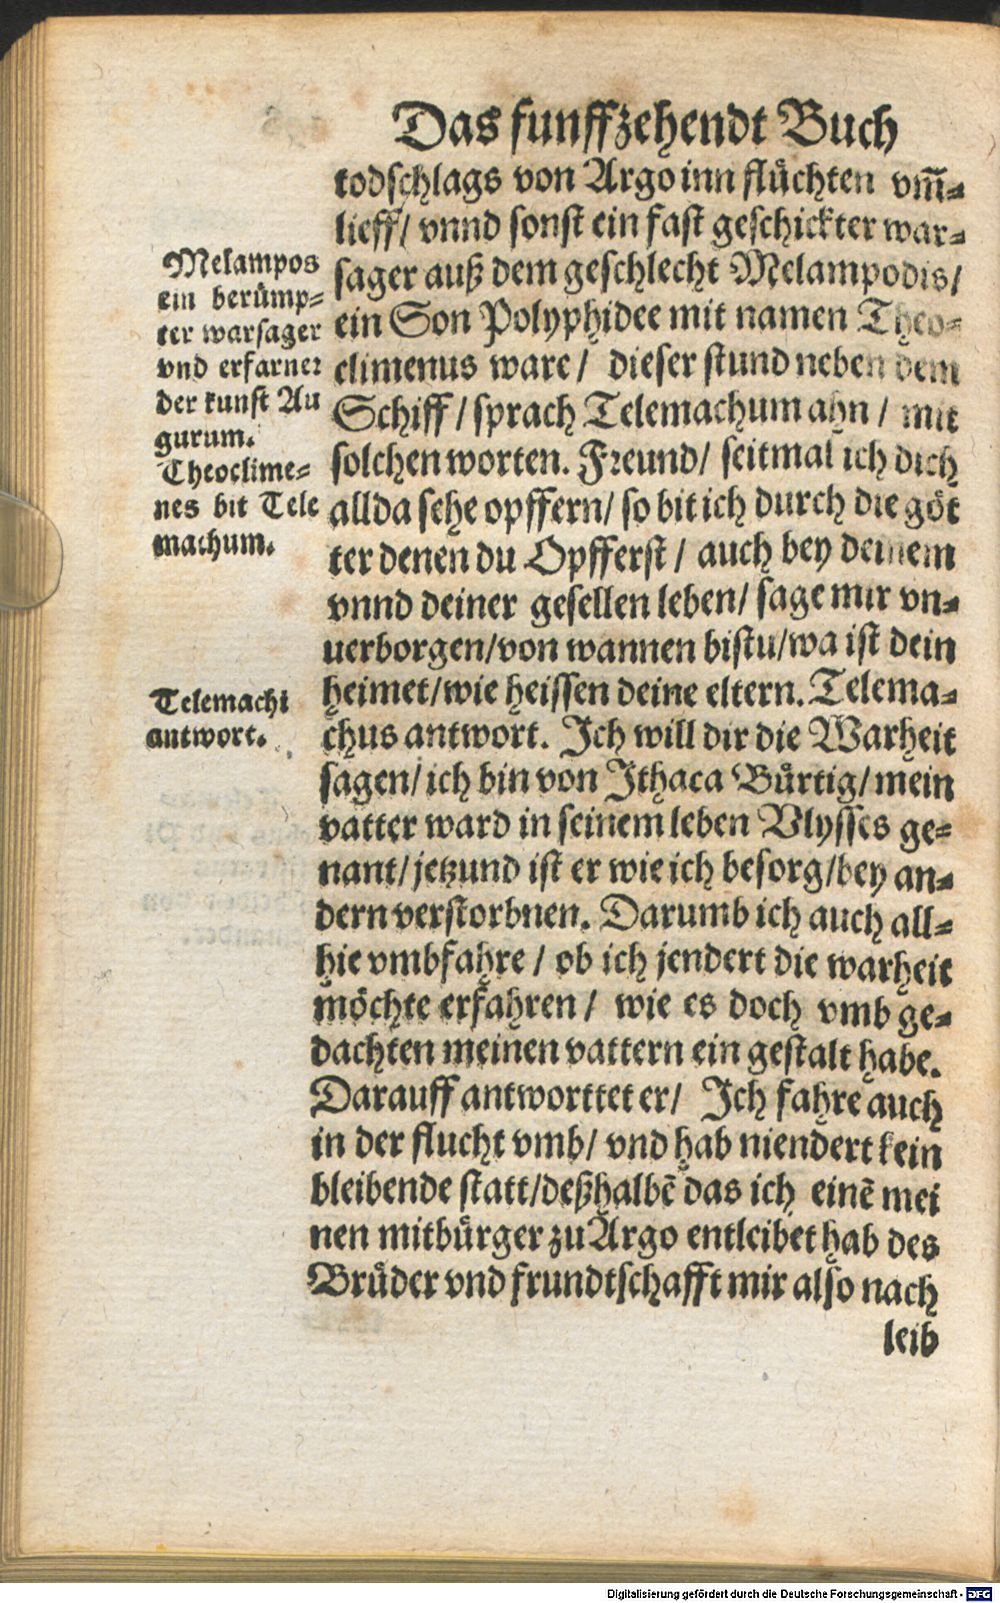 Das funffzehendt Buch
todschlags von Argo inn flüchten vm̃-
lieff/ vnnd sonst ein fast geschickter war-
sager auß dem geschlecht Melampodis/
ein Son Polyphidee mit namen Theo-
climenus ware/ dieser stund neben dem
Schiff/ sprach Telemachum ahn/ mit
solchen worten. Freund/ seitmal ich dich
allda sehe opffern/ so bit ich durch die göt
ter denen du Opfferst/ auch bey deinem
vnnd deiner gesellen leben/ sage mir vn-
uerborgen/ von wannen bistu/ wa ist dein
heimet/ wie heissen deine eltern. Telema-
chus antwort. Ich will dir die Warheit
sagen/ ich bin von Ithaca Bürtig/ mein
vatter ward in seinem leben Vlysses ge-
nant/ jetzund ist er wie ich besorg/ bey an-
dern verstorbnen. Darumb ich auch all-
hie vmbfahre/ ob ich jendert die warheit
möchte erfahren/ wie es doch vmb ge-
dachten meinen vattern ein gestalt habe.
Darauff antworttet er/ Ich fahre auch
in der flucht vmb/ vnd hab niendert kein
bleibende statt/ deßhalbē das ich einē mei
nen mitbürger zu Argo entleibet hab des
Brüder vnd frundtschafft mir also nach
leib
Melampos
ein berümp-
ter warsager
vnd erfarner
der kunst Au
gurum.
Theoclime-
nes bit Tele
machum.
Telemachi
antwort.
Digitalisierung gefördert durch die Deutsche Forschungsgemeinschaft - DFG